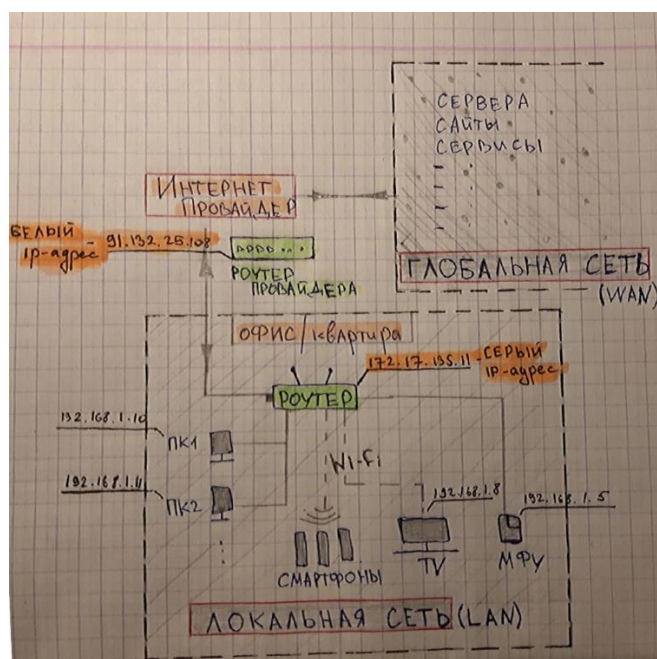 СЕРВЕРА
САЙТЫ
СЕРВИСЫ
ИНТЕРНЕТ
ПРОВАЙДЕР
БЕЛЫЙ
IP-адрес
91.132.25.108
РОУТЕР
ПРОВАЙДЕРА
ГЛОБАЛЬНАЯ СЕТЬ
(WAN)
ОФИС/квартира
172.17.135.11 - СЕРЫЙ
IP-адрес
РОУТЕР
192.168.1.10
ПК1
Wi-Fi
192.168.1.4
ПК2
192.168.1.8
192.168.1.5
СМАРТФОНЫ
TV
МФУ
ЛОКАЛЬНАЯ СЕТЬ (LAN)